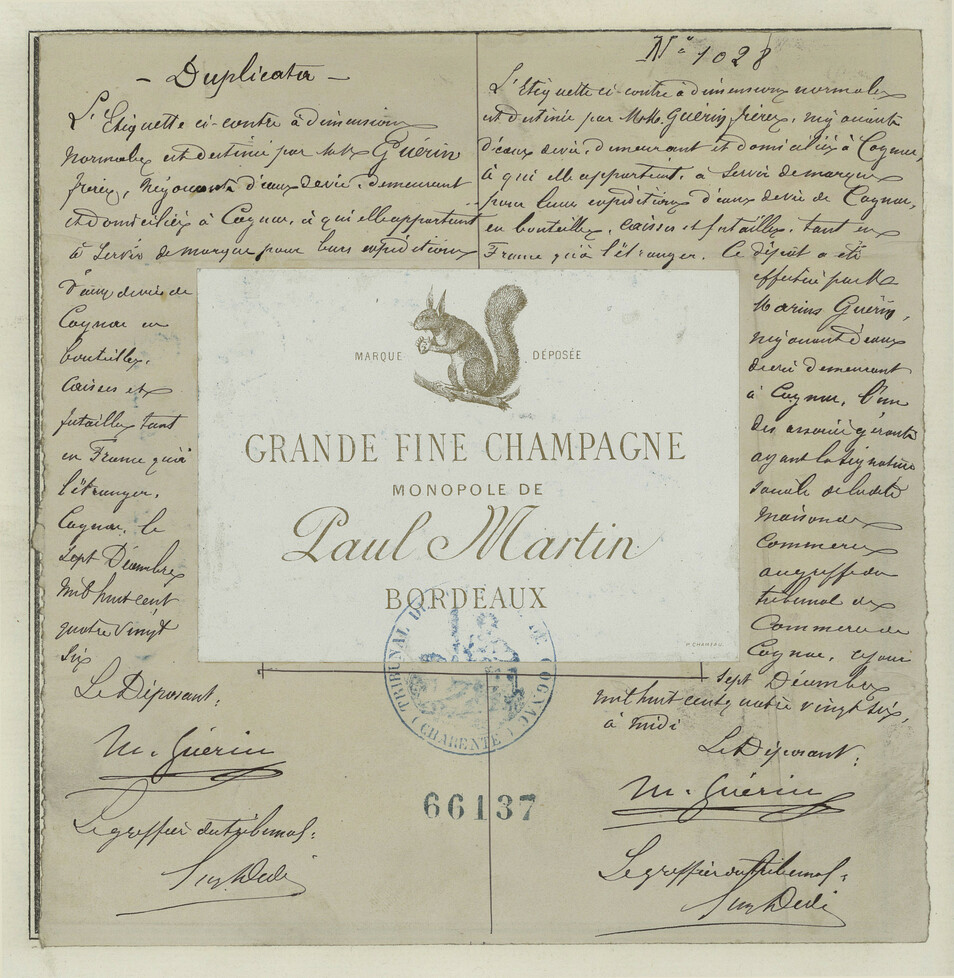 — Duplicata —
L'Etiquette ci-contre à dimensions
normales est destinée par MM. Guérin
frères, négociants d'eaux de vie, demeurant
et domiciliés à Cognac, à qui elle appartient
à servir de marque pour leurs expéditions
d'eaux de vie de
Cognac en
bouteilles,
caisses et
futailles tant
en France qu'à
l'étranger.
Cognac, le
sept Décembre
mil huit cent
quatre vingt
six
Le Déposant:
M. Guérin
Le greffier du tribunal:
N° 1028
L'Etiquette ci-contre à dimensions normales
est destinée par MM. Guérin frères, négociants
d'eaux de vie, demeurant et domiciliés à Cognac,
à qui elle appartient, à servir de marque
pour leurs expéditions d'eaux de vie de Cognac,
en bouteilles, caisses et futailles, tant en
France qu'à l'étranger. Ce dépôt a été
effectué par M.
Marius Guérin,
négociant d'eaux
de vie demeurant
à Cognac, l'un
des associés gérants
ayant la signature
sociale de ladite
maison de
Commerce
au greffe du
tribunal de
Commerce de
Cognac, ce jour
sept Décembre
mil huit cent quatre vingt six,
à midi
Le Déposant:
M. Guérin
Le greffier du tribunal:
MARQUE DÉPOSÉE
GRANDE FINE CHAMPAGNE
MONOPOLE DE
Paul Martin
BORDEAUX
TRIBUNAL DE COGNAC
(CHARENTE)
66137